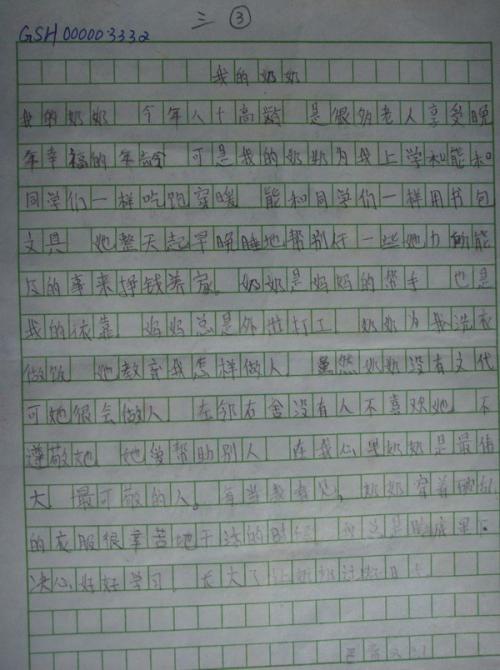 三 ③
GSH00003332
我的奶奶
我的奶奶 今年八十高龄 是很多老人享受晚
年幸福的年龄 可是我的奶奶为我上学和能和
同学们一样吃饱穿暖 能和同学们一样用书包
文具 她整天起早晚睡地帮别人一些她力所能
及的事来挣钱养家。奶奶是妈妈的帮手 也是
我的依靠 妈妈总是外出打工 奶奶为我洗衣
做饭 她教育我怎样做人 虽然奶奶没有文化
可她很会做人 左邻右舍没有人不喜欢她 不
遵敬她 她爱帮助别人 在我心里奶奶是最伟
大 最可敬的人。每当我看见，奶奶穿着
的衣服很辛苦地干活的时 我总是暗
决心好好学习 长大了让奶奶过